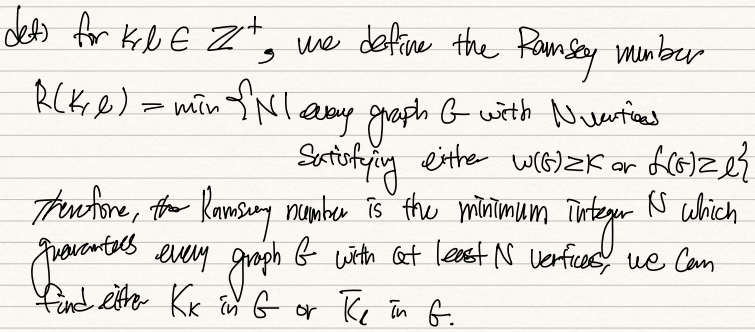 def) for k, l ∈ Z⁺, we define the Ramsey number
R(k, l) = min {N | every graph G with N vertices
satisfying either ω(G)≥k or α(G)≥l}
Therefore, the Ramsey number is the minimum integer N which
guarantees every graph G with at least N vertices, we can
find either Kₖ in G or K̅ₗ in G.